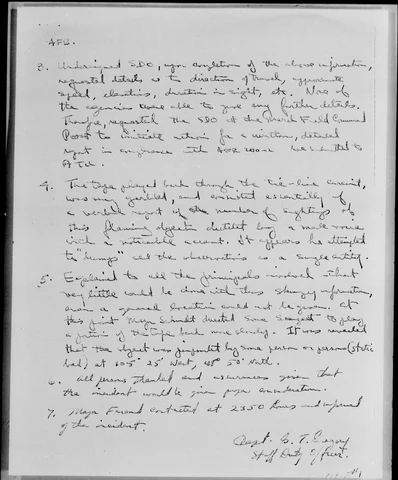 AFB.
3. Undersigned SDO, upon completion of the above information,
requested details as to direction of travel, approximate
speed, elevations, duration in sight, etc. None of
the agencies were able to give any further details.
Therefore, requested the SDO at the March Field Command
Post to initiate action for a written, detailed
report in compliance with AFR 200-2 be submitted to
ATIC.
4. The tape played back through the tie-line circuit,
was very garbled, and consisted essentially of
a verbal report of the number of sightings of
this flaming object dictated by a male voice
with a noticeable accent. It appears he attempted
to "lump" all the observations as a single entity.
5. Explained to all the principals involved that
very little could be done with this skimpy information,
even a general location could not be given. At
this point Major Schmidt directed some Sergeant to play
a portion of the tape back more slowly. It was revealed
that the object was pinpointed by some person or persons (static
bad) at 105° 25' West, 48° 50' North.
6. All persons thanked and assurances given that
the incident would be given proper consideration.
7. Major Friend contacted at 2350 hours and informed
of the incident.
Capt. E. T. Gregory
Staff Duty Officer